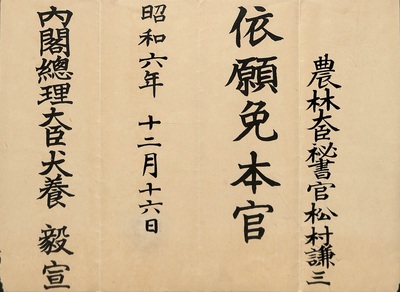 農林大臣祕書官松村謙三
依願免本官
昭和六年十二月十六日
內閣總理大臣犬養毅宣